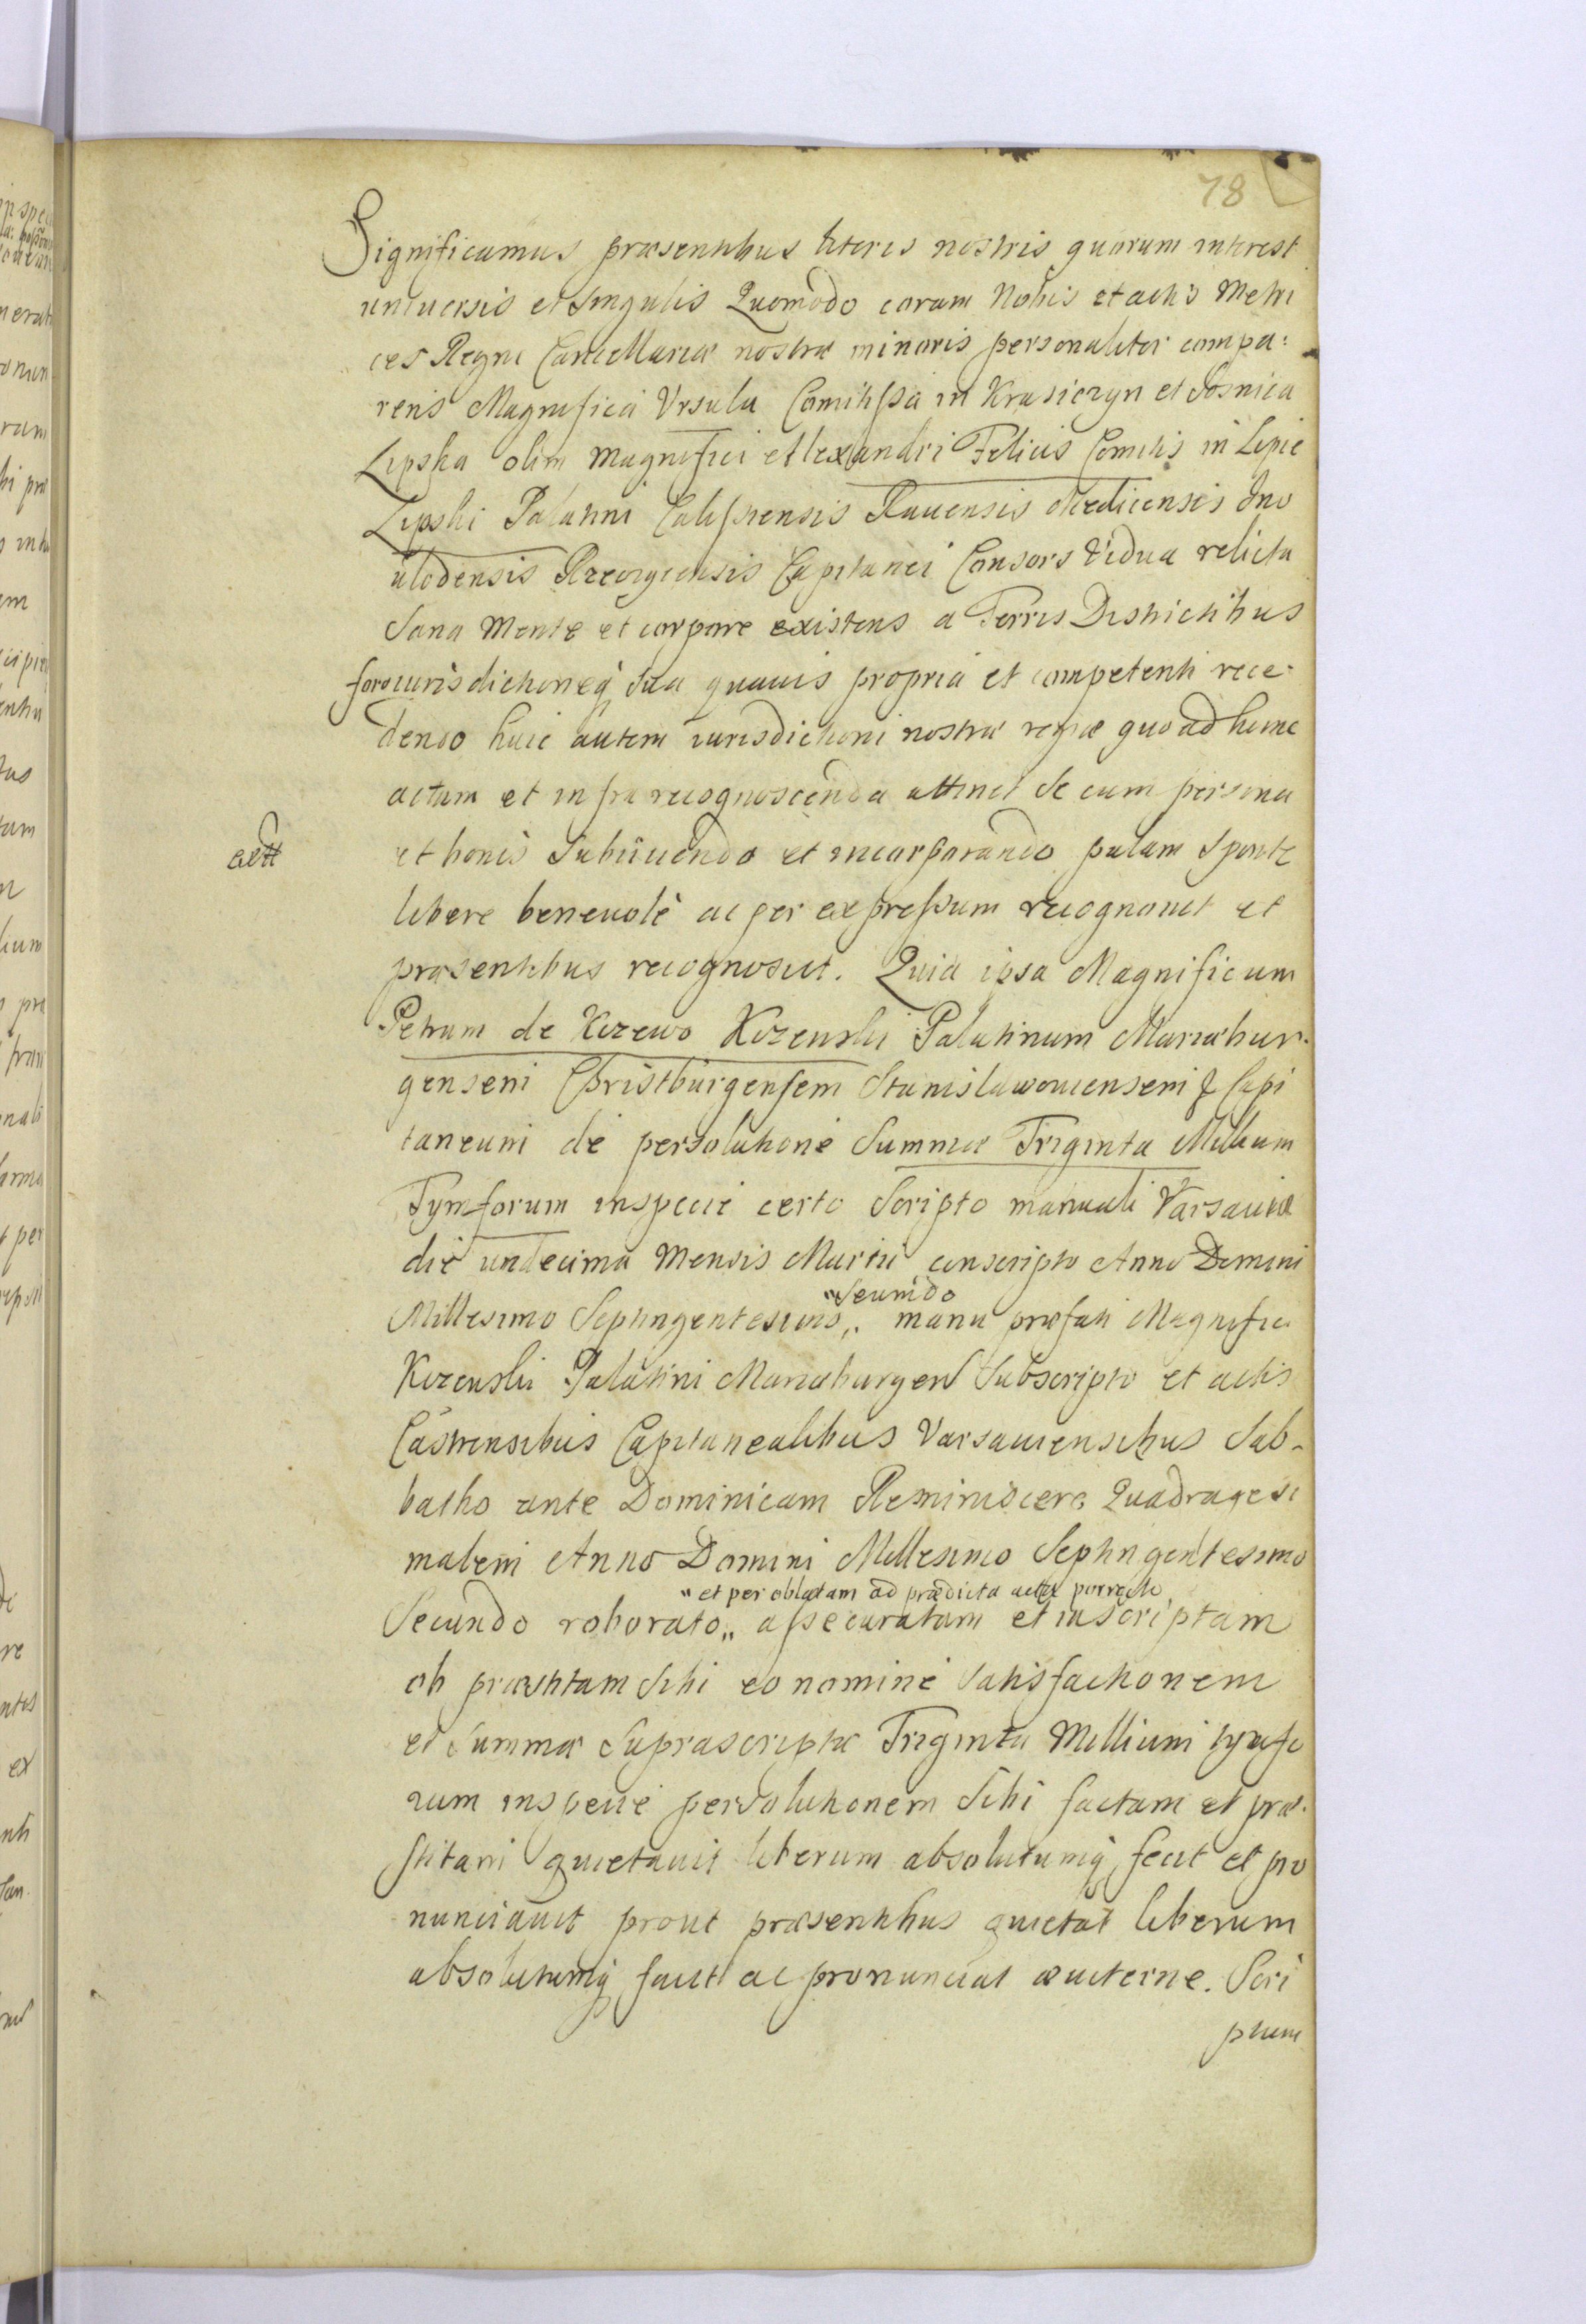 78
Significamus præsentibus literis nostris quorum interest
uniuersis et singulis Quomodo coram Nobis et actis Metri
ces Regni Cancellariæ nostræ minoris personaliter compa:
rens Magnifica Vrsula Comitissa in Krasiczyn et Sosnica
Lipska olim Magnifici Allexandri Felicis Comitis in Lipie
Lipski Palatini Calissiensis Rauensis Medicensis Ino
ulodensis Rzeczycensis Capitanei Consors Vidua relicta
Sana Mente et corpore existens a Terris Districtibus
foro iurisdictioneq̃ sua quauis propria et competenti rece:
dendo huic autem iurisdictioni nostræ regiæ quo ad hunc
actum et infra recognoscenda attinet se cum persona
et bonis Subiiciendo et incorporando palam Sponte
libere beneuolè ac per expressum recognouit et
præsentibus recognoscit. Quia ipsa Magnificum
Petrum de Kczewo Kczewski Palatinum Mariæbur-
gensem Christburgensem Stanislawouiensem & Capi
taneum de persolutione Summæ Triginta Millium
Tymforum inspecie certo Scripto manuali Varsauiæ
die undecima Mensis Martii conscripto Anno Domini
„Secundo
Millesimo Septingentesimo„ manu præfati Magnifici
Kczewski Palatini Mariæburgen Subscripto et actis
Castrensibus Capitanealibus Varsauiensibus Sab-
batho ante Dominicam Reminiscere Quadragesi
malem Anno Domini Millesimo Septingentesimo
„et per oblatam ad prædicta acta porrecto
Secundo roborato„ assecuratam et inscriptam
ob præstitam Sibi eo nomine satisfactionem
et Summæ Suprascriptæ Triginta Millium tymfo
rum inspecie persolutionem Sibi factam et præ-
stitam quietauit liberum absolutumq̃ fecit et pro
nunciauit prout præsentibus quietat liberum
absolutumq̃ facit ac pronunciat æuiterne. Scri
ptum